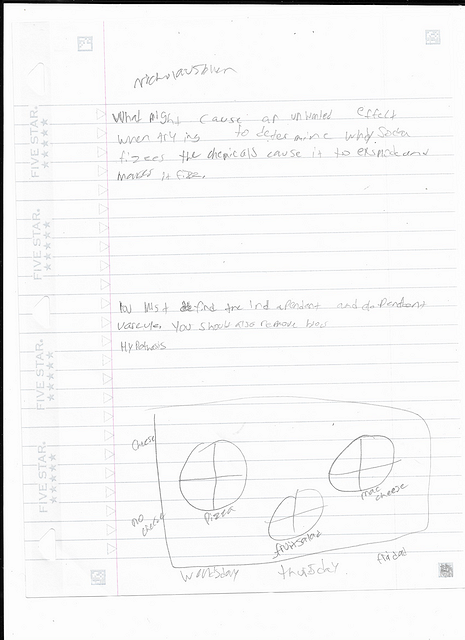 What might cause an unlimited effect
when trying to determine why Soda
fizees the chemicals cause it to and
makes it fize.
You Must find the Independent and dependent
You should also remove
Cheese
no cheese
Pizza
mac cheese
fruitsalad
Wensday thursday friday
FIVE STAR.
FIVE STAR.
FIVE STAR.
FIVE STAR.